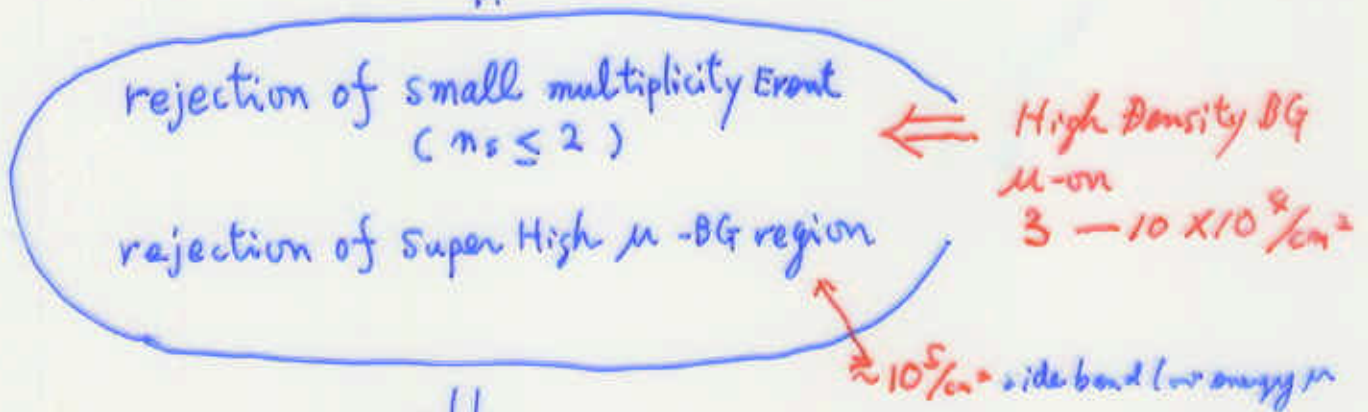 rejection of small multiplicity Event
( ns ≤ 2 )
rejection of super High μ -BG region
High Density BG
μ-on
3 — 10 × 10⁴/cm²
≈ 10⁵/cm² side band low energy μ